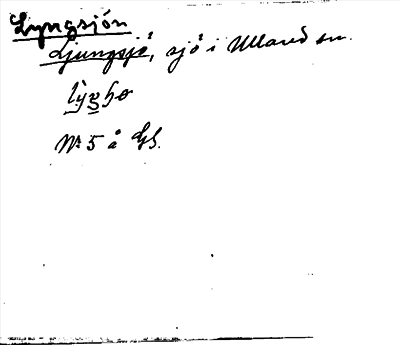 Lyngsjön
Ljungsjö, sjö i Ullared sn.
Nr 5 å